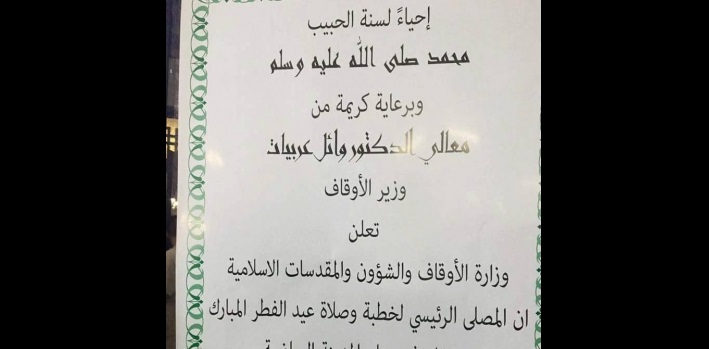 إحياءً لسنة الحبيب
محمد صلى الله عليه وسلم
وبرعاية كريمة من
معالي الدكتور وائل عربيات
وزير الأوقاف
تعلن
وزارة الأوقاف والشؤون والمقدسات الاسلامية
ان المصلى الرئيسي لخطبة وصلاة عيد الفطر المبارك